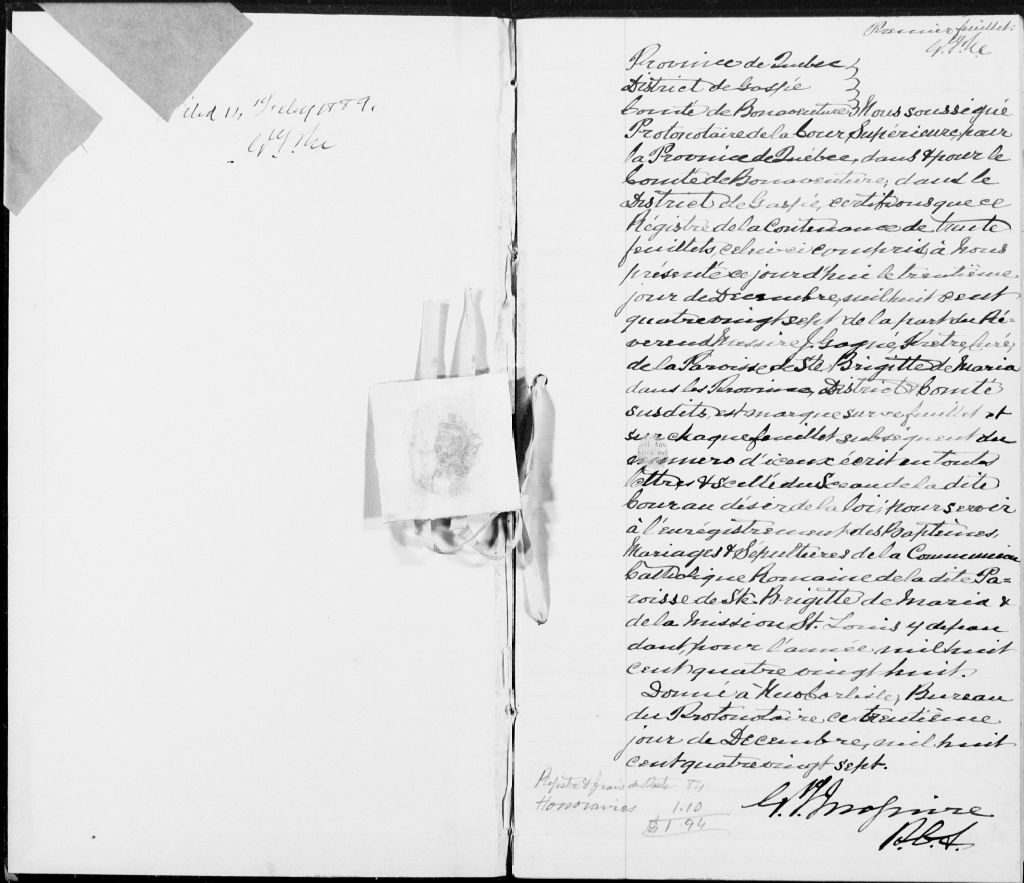 Feby 1889.
Premier feuillet.
Province de Québec
District de Gaspé
Comté de Bonaventure Nous soussigné
Protonotaire de la Cour Supérieure, pour
la Province de Québec, dans & pour le
Comté de Bonaventure, dans le
District de Gaspé, certifions que ce
Régistre de la Contenance de trente
feuillets, celui ci compris, à Nous
présenté ce jourd'hui le trentième
jour de Decembre, mil huit cent
quatre vingt sept de la part du Ré-
verend Messire J. Gagné, Prêtre, Curé,
de la Paroisse de Ste Brigitte de Maria
dans les Province, District & Comté
susdits, est marqué sur ce feuillet et
sur chaque feuillet subséquent du
numero d'iceux écrit en toutes
lettres & scellé du Sceau de la dite
Cour au désir de la loi, pour servir
à l'enrégistrement des Baptêmes,
Mariages & Sépultures de la Communion
Catholique Romaine de la dite Pa-
roisse de Ste Brigitte de Maria &
de la Mission St. Louis y dépen
dant, pour l'année mil huit
cent quatre vingt huit.
Donné à New Carlisle, Bureau
du Protonotaire, ce trentième
jour de Decembre, mil huit
cent quatre vingt sept.
Registre & frais de 84
Honoraires 1.10
$1.94
P.C.S.